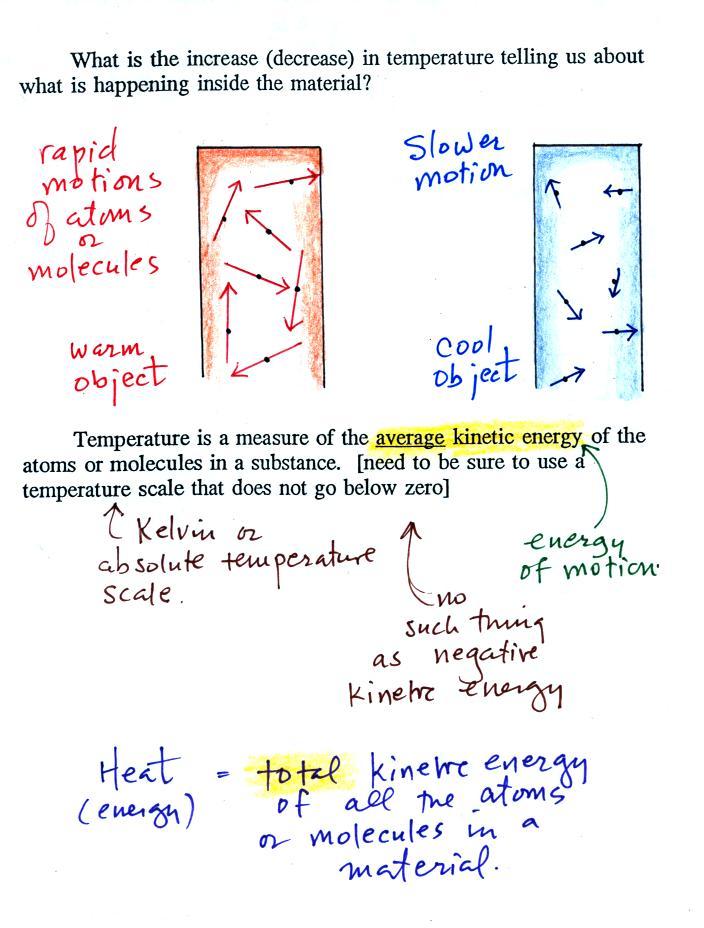 What is the increase (decrease) in temperature telling us about
what is happening inside the material?
rapid
motions
of atoms
or
molecules
warm
object
Slower
motion
cool
object
Temperature is a measure of the average kinetic energy of the
atoms or molecules in a substance. [need to be sure to use a
temperature scale that does not go below zero]
Kelvin or
absolute temperature
scale.
no
such thing
as negative
kinetic energy
energy
of motion.
Heat = total kinetic energy
(energy) of all the atoms
or molecules in a
material.